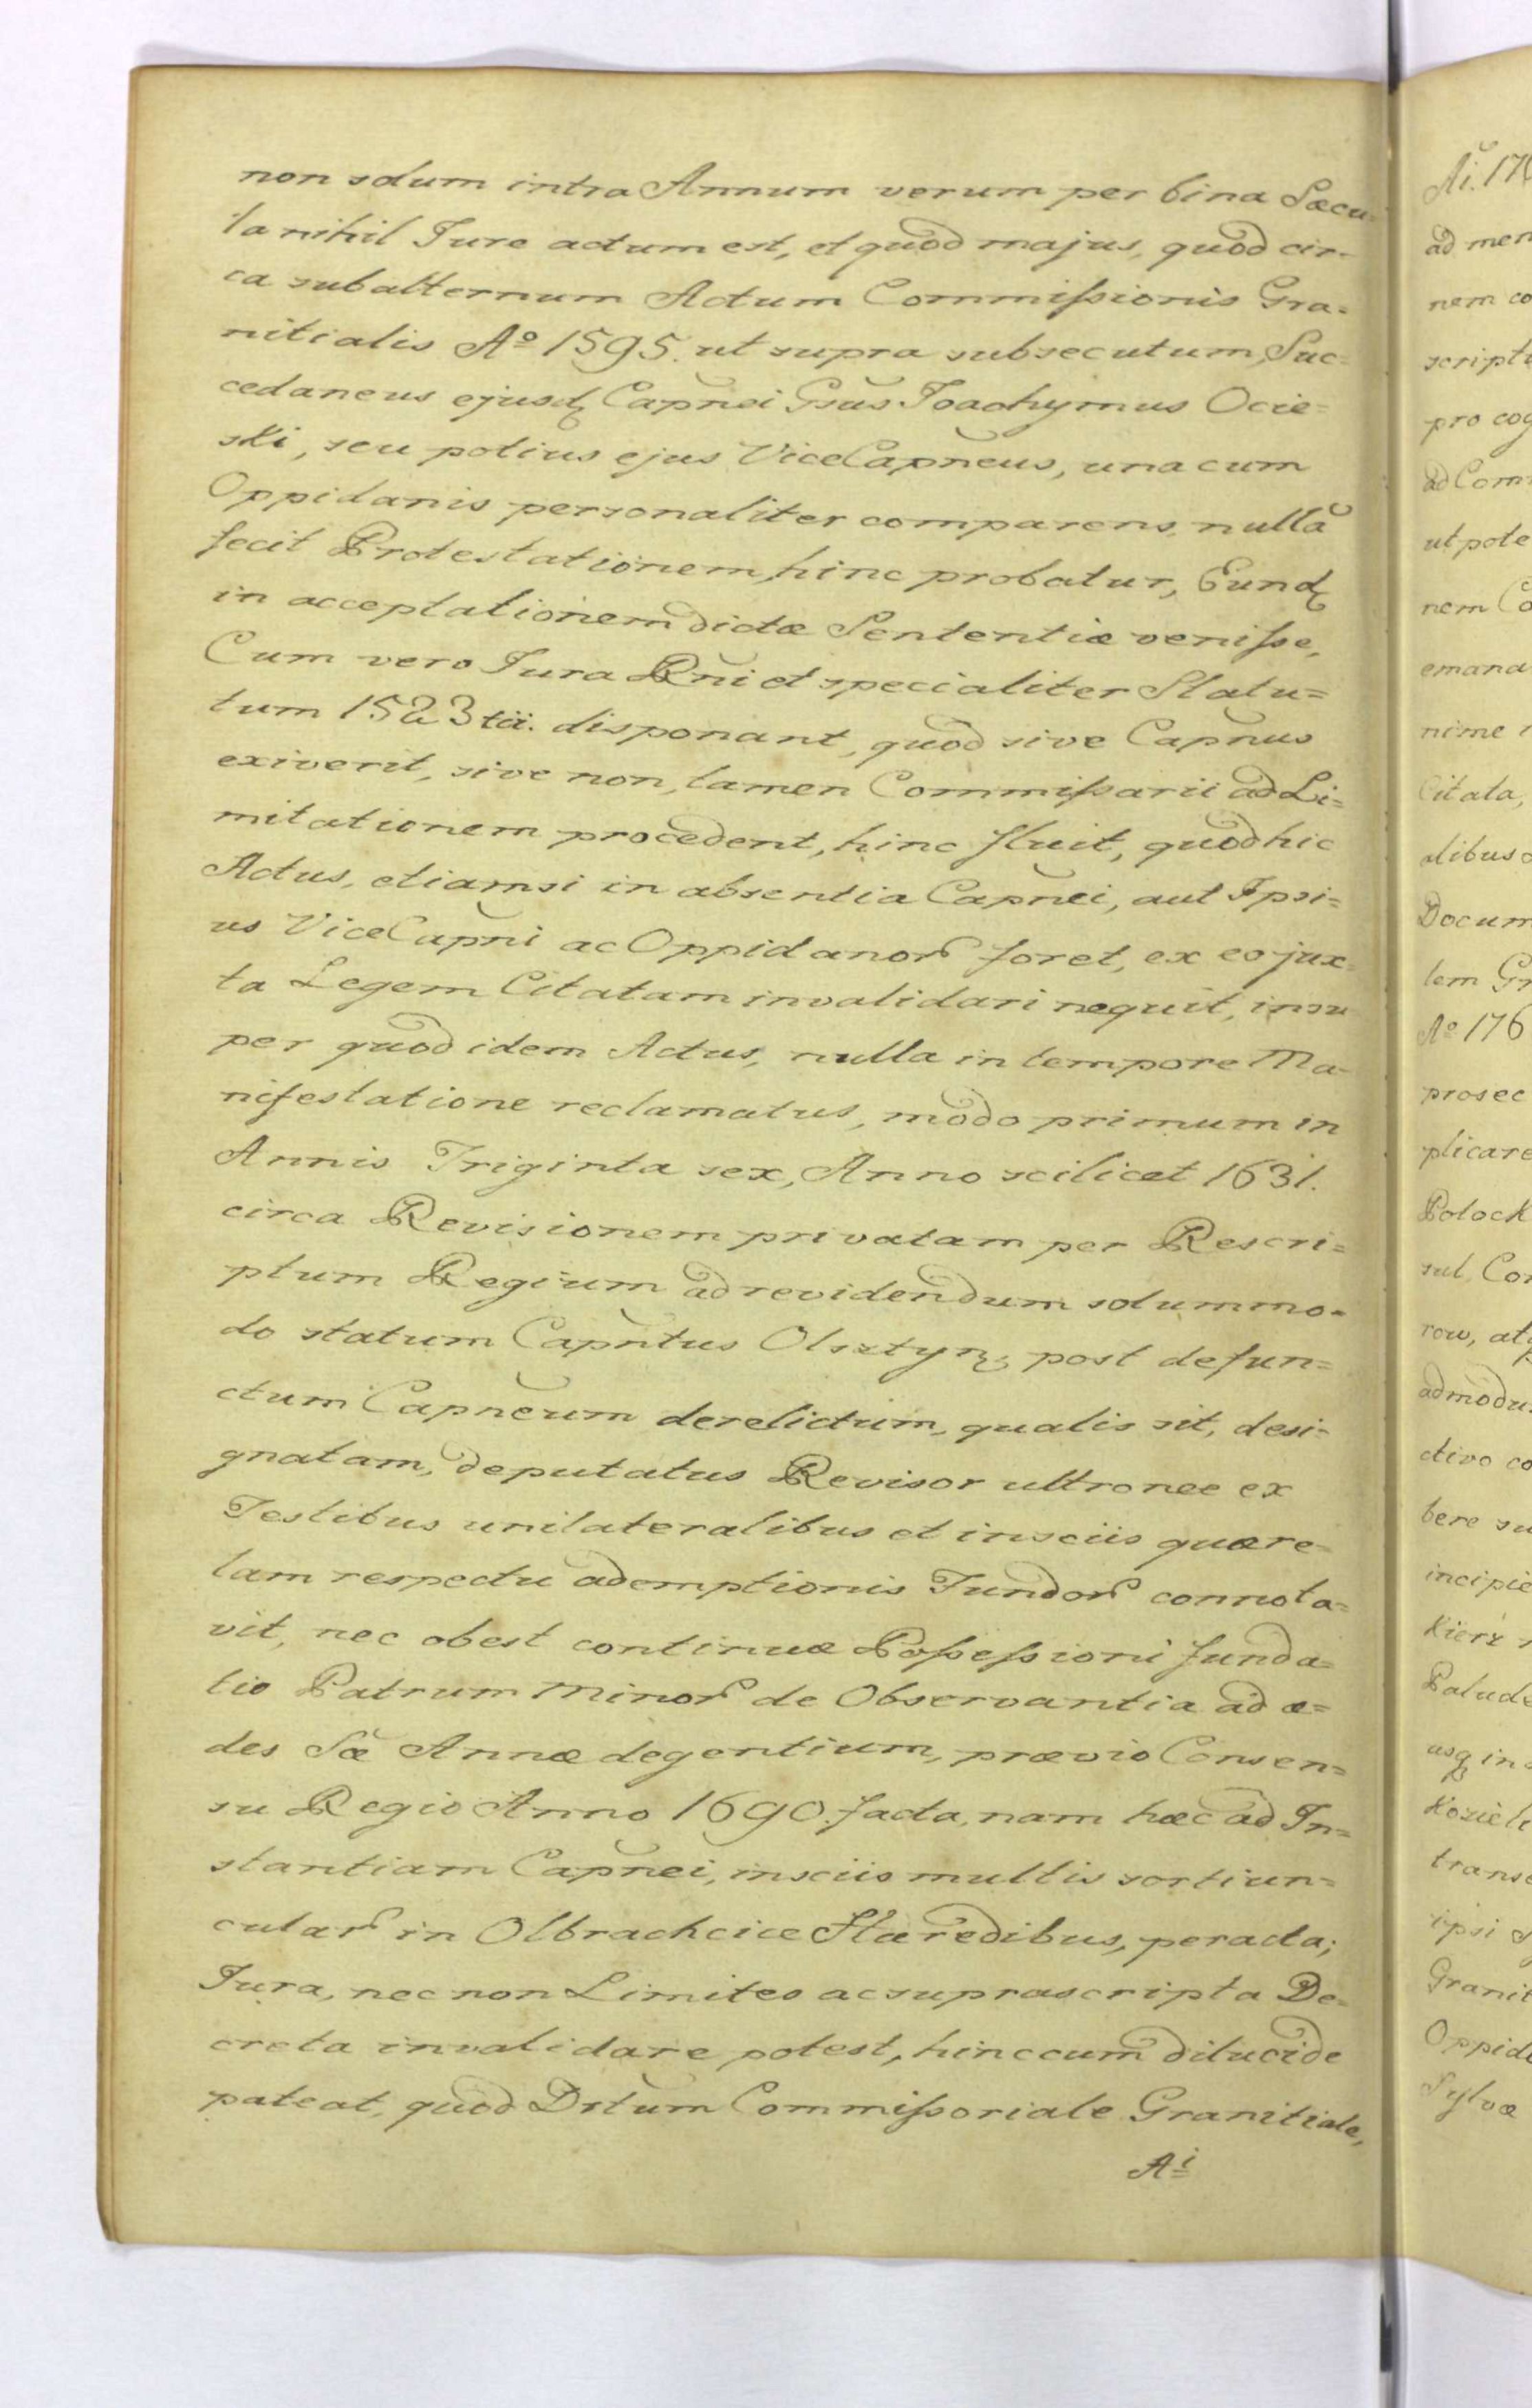 non solum intra Annum verum per bina Sæcu=
la nihil Jure actum est, et quod majus, quod cir=
ca subalternum Actum Commißionis Gra=
nitialis Aº 1595. ut supra subsecutum, Suc=
cedaneus ejusdꝫ Capñei Gsus Joachymus Ocie=
ski, seu potius ejus ViceCapñeus, una cum
Oppidanis personaliter comparens, nullã
fecit Protestationem, hinc probatur, Eundꝫ
in acceptationem dictæ Sententiæ venisse,
Cum vero Jura Rñi et specialiter Statu=
tum 1523 tii. disponant, quod sive Capñus
exiverit, sive non, tamen Commißarii ad Li=
mitationem procedent, hinc fluit, quod hic
Actus, etiamsi in absentia Capñei, aut Ipsi=
us ViceCapñi ac Oppidanor̃ foret, ex eo jux=
ta Legem Citatam invalidari nequit, insu
per quod idem Actus, nulla in tempore Ma=
nifestatione reclamatus, modo primum in
Annis Triginta sex, Anno scilicet 1631.
circa Revisionem privatam per Rescri=
ptum Regium ad revidendum solummo=
do statum Capñtus Olsztynꝫ, post defun=
ctum Capñeum derelictum, qualis sit, desi=
gnatam, deputatus Revisor ultronee ex
Testibus unilateralibus et insciis quære=
lam respectu ademptionis Fundor̃ connota=
vit, nec obest continuæ Poßeßioni funda=
tio Patrum Minor̃ de Observantia ad æ=
des Sæ Annæ degentium, prævio Consen=
su Regio Anno 1690. facta, nam hæc ad In=
stantiam Capñei, insciis multis sortiun=
cular̃ in Olbrachcice Hæredibus, peracta;
Jura, nec non Limites ac suprascripta De=
creta invalidare potest, hinc cum dilucide
pateat, quod Dstum Commißoriale Granitiale,
Aⁱ
Ai. 17
ad men
nem co
scripti
pro cog
ad Com
ut pote
nem Co
emana
nime
Citata,
alibus
Docum
tem Gr
Aº 176
prosec
plicare
Polock
sul, Con
row, atq
admodu
ctivo co
bere su
incipie
Kierz
Palude
usqꝫ in
Koziel
transe
ipsi
Granit
Oppid
Sylvæ